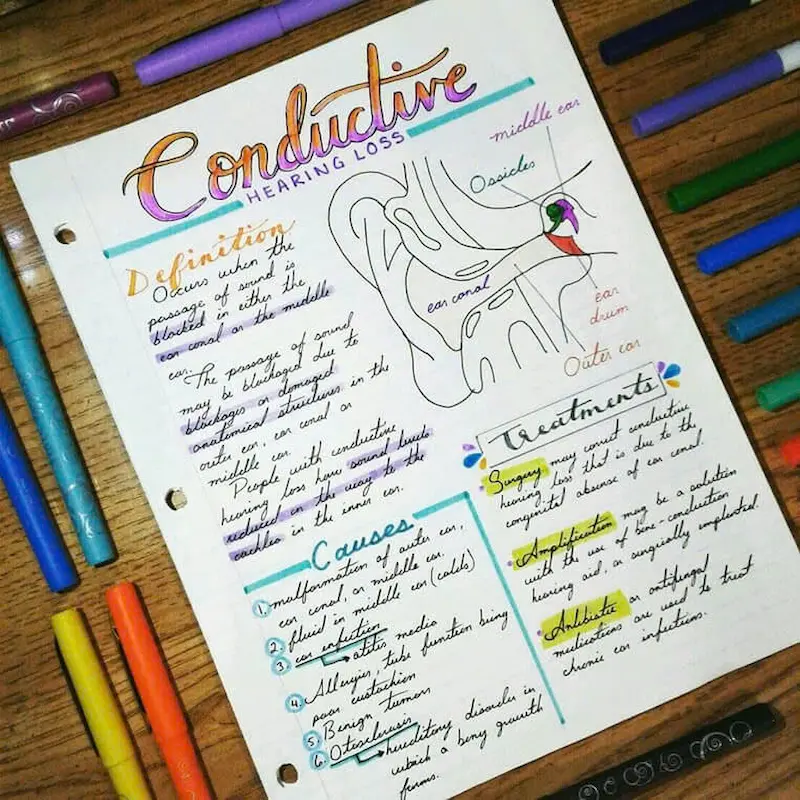 Conductive
HEARING LOSS
Definition
Occurs when the
passage of sound is
blocked in either the
ear canal or the middle
ear.
The passage of sound
may be blockaged due to
blockages or damaged
anatomical structures in the
outer ear, ear canal or
middle ear.
People with conductive
hearing loss have sound levels
reduced on the way to the
cochlea in the inner ear.
middle ear
Ossicles
ear canal
ear
drum
Outer ear
Causes
1. malformation of outer ear,
ear canal, or middle ear.
2. fluid in middle ear (colds)
3. ear infection
→ otitis media
4. Allergies, tube function being
poor eustachian
5. Benign tumors
6. Otosclerosis
→ hereditary disorder in
which a bony growth
forms.
Treatments
Surgery may correct conductive
hearing loss that is due to the
congenital absense of ear canal.
Amplification may be a solution
with the use of bone-conduction
hearing aid, or surgically implanted.
Antibiotic or antifungal
medications are used to treat
chronic ear infections.